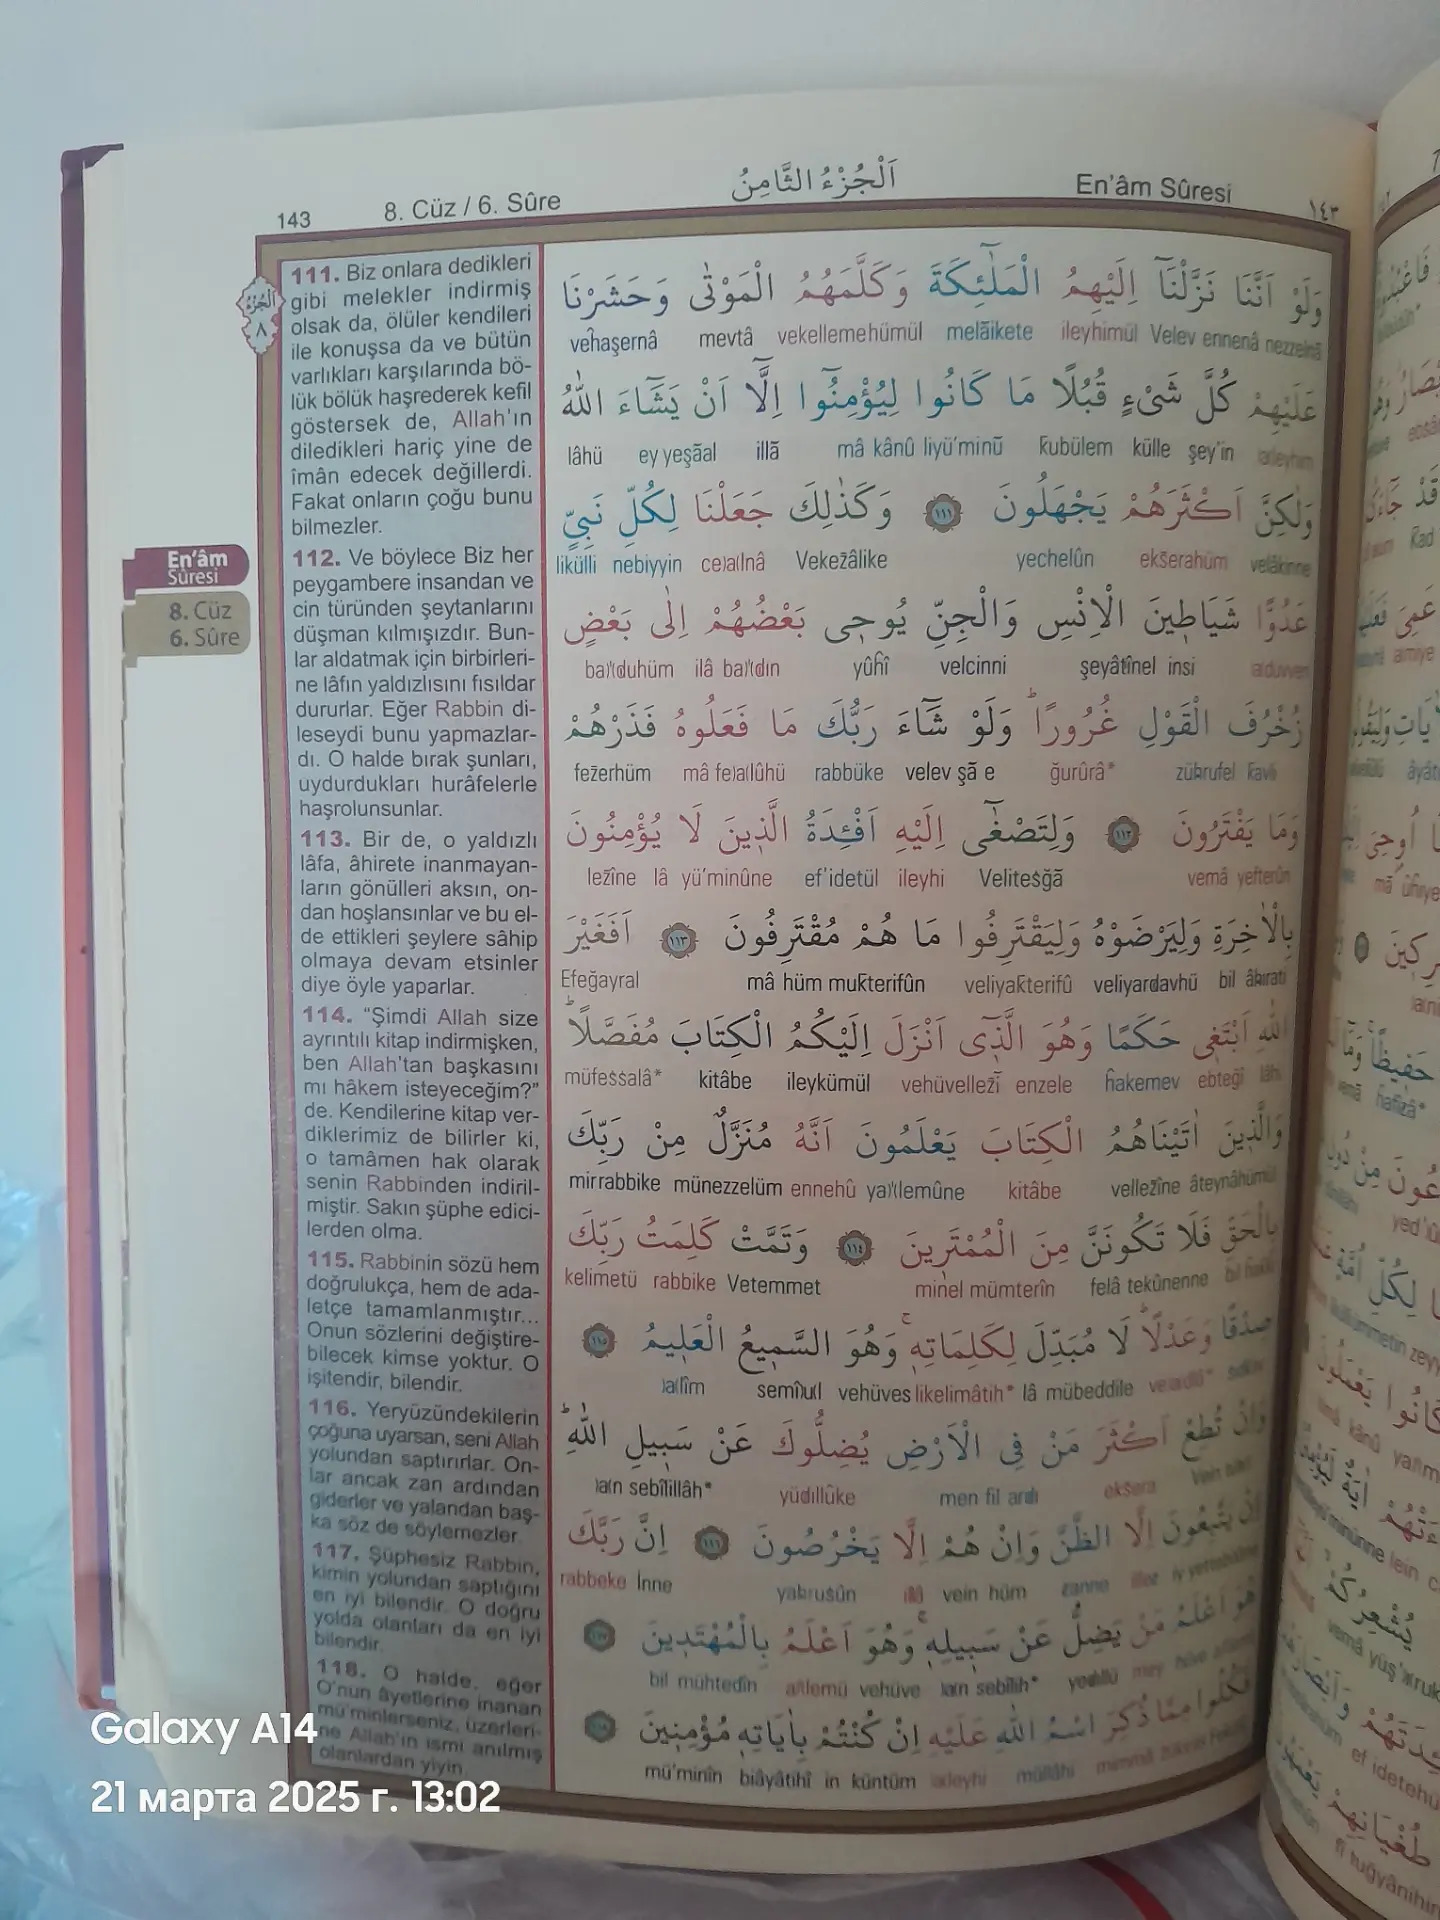 143
8. Cüz / 6. Sûre
اَلْجُزْءُ الثَّامِنُ
En'âm Sûresi
١٤٣
اَلْجُزْءُ
٨
En'âm
Sûresi
8. Cüz
6. Sûre
111. Biz onlara dedikleri
gibi melekler indirmiş
olsak da, ölüler kendileri
ile konuşsa da ve bütün
varlıkları karşılarında bö-
lük bölük haşrederek kefil
göstersek de, Allah'ın
diledikleri hariç yine de
îmân edecek değillerdi.
Fakat onların çoğu bunu
bilmezler.
112. Ve böylece Biz her
peygambere insandan ve
cin türünden şeytanlarını
düşman kılmışızdır. Bun-
lar aldatmak için birbirleri-
ne lâfın yaldızlısını fısıldar
dururlar. Eğer Rabbin di-
leseydi bunu yapmazlar-
dı. O halde bırak şunları,
uydurdukları hurâfelerle
haşrolunsunlar.
113. Bir de, o yaldızlı
lâfa, âhirete inanmayan-
ların gönülleri aksın, on-
dan hoşlansınlar ve bu el-
de ettikleri şeylere sâhip
olmaya devam etsinler
diye öyle yaparlar.
114. “Şimdi Allah size
ayrıntılı kitap indirmişken,
ben Allah'tan başkasını
mı hâkem isteyeceğim?”
de. Kendilerine kitap ver-
diklerimiz de bilirler ki,
o tamâmen hak olarak
senin Rabbinden indiril-
miştir. Sakın şüphe edici-
lerden olma.
115. Rabbinin sözü hem
doğrulukça, hem de ada-
letçe tamamlanmıştır...
Onun sözlerini değiştire-
bilecek kimse yoktur. O
işitendir, bilendir.
116. Yeryüzündekilerin
çoğuna uyarsan, seni Allah
yolundan saptırırlar. On-
lar ancak zan ardından
giderler ve yalandan baş-
ka söz de söylemezler.
117. Şüphesiz Rabbin,
kimin yolundan saptığını
en iyi bilendir. O doğru
yolda olanları da en iyi
bilendir.
118. O halde, eğer
O'nun âyetlerine inanan
mü'minlerseniz, üzerleri-
ne Allah'ın ismi anılmış
olanlardan yiyin.
وَلَوْ اَنَّنَا نَزَّلْنَٓا اِلَيْهِمُ الْمَلٰٓئِكَةَ وَكَلَّمَهُمُ الْمَوْتٰى وَحَشَرْنَا
vehaşernâ mevtâ vekellemehümül melãikete ileyhimül Velev ennenâ nezzelnã
عَلَيْهِمْ كُلَّ شَىْءٍ قُبُلًا مَا كَانُوا لِيُؤْمِنُٓوا اِلَّٓا اَنْ يَشَٓاءَ اللّٰهُ
lâhü ey yeşãal illã mâ kânû liyü'minũ kubülem külle şey'in aleyhim
وَلٰكِنَّ اَكْثَرَهُمْ يَجْهَلُونَ ١١١ وَكَذٰلِكَ جَعَلْنَا لِكُلِّ نَبِىٍّ
likülli nebiyyin cealnâ Vekezâlike yechelûn ekserahüm velâkinne
عَدُوًّا شَيَاطٖينَ الْاِنْسِ وَالْجِنِّ يُوحٖى بَعْضُهُمْ اِلٰى بَعْضٍ
ba'duhüm ilâ ba'dın yûhî velcinni şeyâtînel insi aduvven
زُخْرُفَ الْقَوْلِ غُرُورًا وَلَوْ شَٓاءَ رَبُّكَ مَا فَعَلُوهُ فَذَرْهُمْ
fezerhüm mâ fealûhü rabbüke velev şã e ğurûrâ* zührufel kavli
وَمَا يَفْتَرُونَ ١١٢ وَلِتَصْغٰٓى اِلَيْهِ اَفْـِٔدَةُ الَّذٖينَ لَا يُؤْمِنُونَ
lezîne lâ yü'minûne ef'idetül ileyhi Velitesğã vemâ yefterûn
بِالْاٰخِرَةِ وَلِيَرْضَوْهُ وَلِيَقْتَرِفُوا مَا هُمْ مُقْتَرِفُونَ ١١٣ اَفَغَيْرَ
Efeğayral mâ hüm mukterifûn veliyakterifû veliyardavhü bil âhırati
اللّٰهِ اَبْتَغٖى حَكَمًا وَهُوَ الَّذٖٓى اَنْزَلَ اِلَيْكُمُ الْكِتَابَ مُفَصَّلًا
müfessalâ* kitâbe ileykümül vehüvellezĩ enzele hakemev ebteğî lâhi
وَالَّذٖينَ اٰتَيْنَاهُمُ الْكِتَابَ يَعْلَمُونَ اَنَّهُ مُنَزَّلٌ مِنْ رَبِّكَ
mirrabbike münezzelüm ennehû ya'lemûne kitâbe vellezîne âteynâhümül
بِالْحَقِّ فَلَا تَكُونَنَّ مِنَ الْمُمْتَرٖينَ ١١٤ وَتَمَّتْ كَلِمَتُ رَبِّكَ
kelimetü rabbike Vetemmet minel mümterîn felâ tekûnenne bil hakkı
صِدْقًا وَعَدْلًا لَا مُبَدِّلَ لِكَلِمَاتِهٖ وَهُوَ السَّمٖيعُ الْعَلٖيمُ ١١٥
alîm semîul vehüves likelimâtih* lâ mübeddile
وَاِنْ تُطِعْ اَكْثَرَ مَنْ فِى الْاَرْضِ يُضِلُّوكَ عَنْ سَبٖيلِ اللّٰهِ
an sebîlillâh* yüdıllûke men fil ardı eksera
اِنْ يَتَّبِعُونَ اِلَّا الظَّنَّ وَاِنْ هُمْ اِلَّا يَخْرُصُونَ ١١٦ اِنَّ رَبَّكَ
rabbeke İnne yahrusûn illâ vein hüm zanne
هُوَ اَعْلَمُ مَنْ يَضِلُّ عَنْ سَبٖيلِهٖ وَهُوَ اَعْلَمُ بِالْمُهْتَدٖينَ ١١٧
bil mühtedîn a'lemü vehüve an sebîlih* yedıllü mey
فَكُلُوا مِمَّا ذُكِرَ اسْمُ اللّٰهِ عَلَيْهِ اِنْ كُنْتُمْ بِاٰيَاتِهٖ مُؤْمِنٖينَ ١١٨
mü'minîn biâyâtihî in küntüm aleyhi müllâhi
Galaxy A14
21 марта 2025 г. 13:02